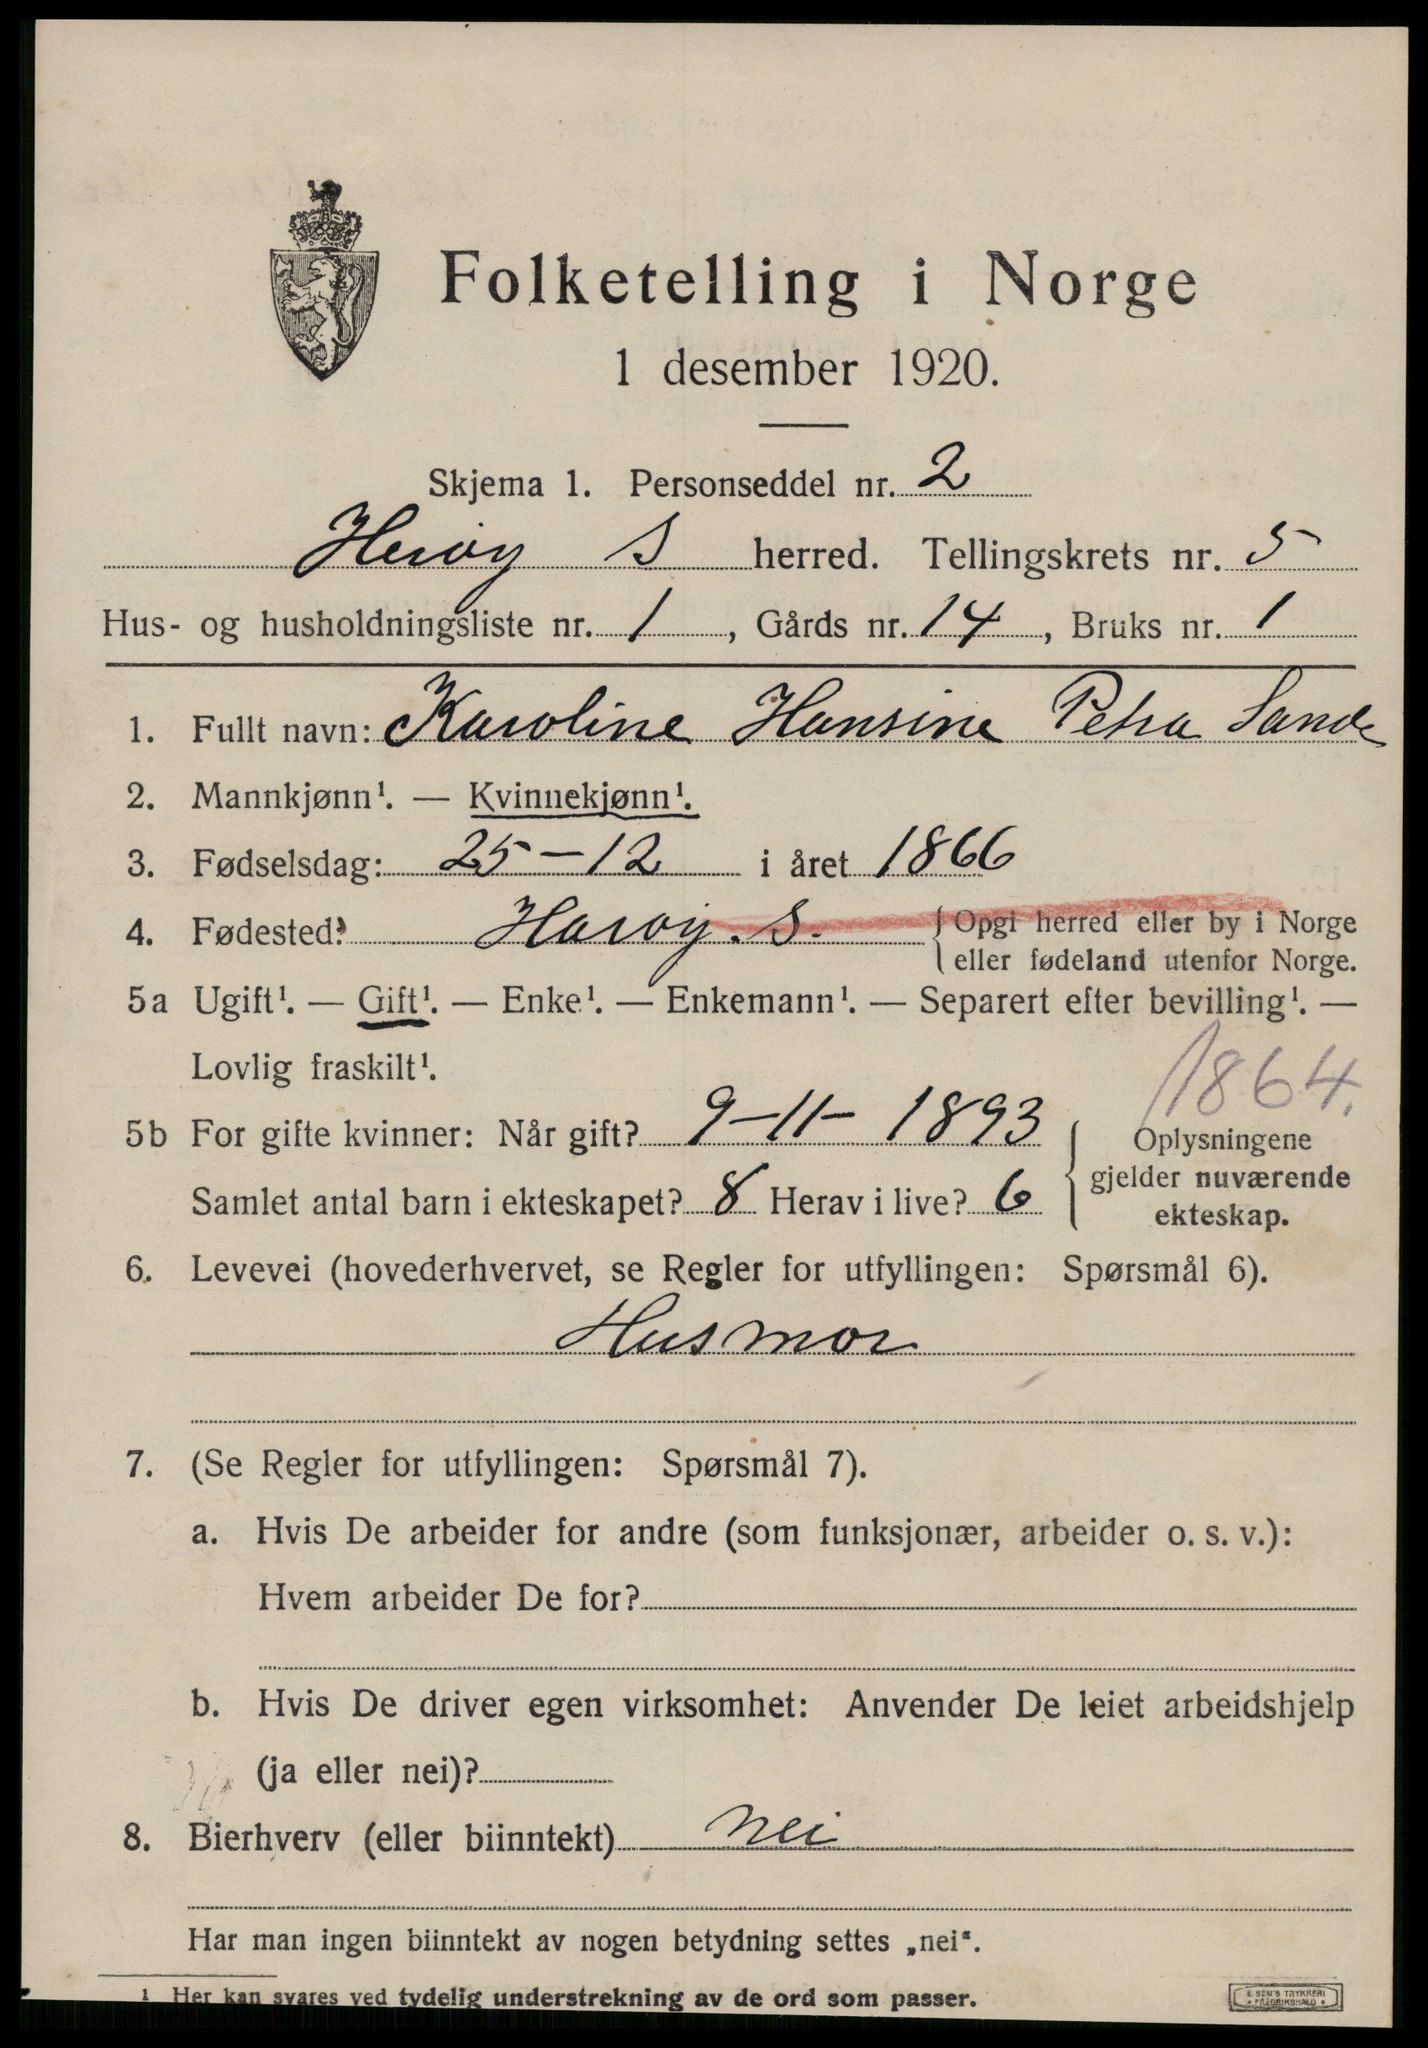 Folketelling i Norge
1 desember 1920.
Skjema 1. Personseddel nr. 2
Herøy S herred. Tellingskrets nr. 5
Hus- og husholdningsliste nr. 1, Gårds nr. 14, Bruks nr. 1
1. Fullt navn: Karoline Hansine Petra Sande
2. Mannkjønn¹. — Kvinnekjønn¹.
3. Fødselsdag: 25-12 i året 1866
4. Fødested: Herøy. S. { Opgi herred eller by i Norge
eller fødeland utenfor Norge.
5a Ugift¹. — Gift¹. — Enke¹. — Enkemann¹. — Separert efter bevilling¹. —
Lovlig fraskilt¹.
1864.
5b For gifte kvinner: Når gift? 9-11- 1893 { Oplysningene
gjelder nuværende
Samlet antal barn i ekteskapet? 8 Herav i live? 6
ekteskap.
6. Levevei (hovederhvervet, se Regler for utfyllingen: Spørsmål 6).
Husmor
7. (Se Regler for utfyllingen: Spørsmål 7).
a. Hvis De arbeider for andre (som funksjonær, arbeider o. s. v.):
Hvem arbeider De for?
b. Hvis De driver egen virksomhet: Anvender De leiet arbeidshjelp
(ja eller nei)?
8. Bierhverv (eller biinntekt) nei
Har man ingen biinntekt av nogen betydning settes „nei".
¹ Her kan svares ved tydelig understrekning av de ord som passer.
E. SEM'S TRYKKERI
FREDRIKSHALD